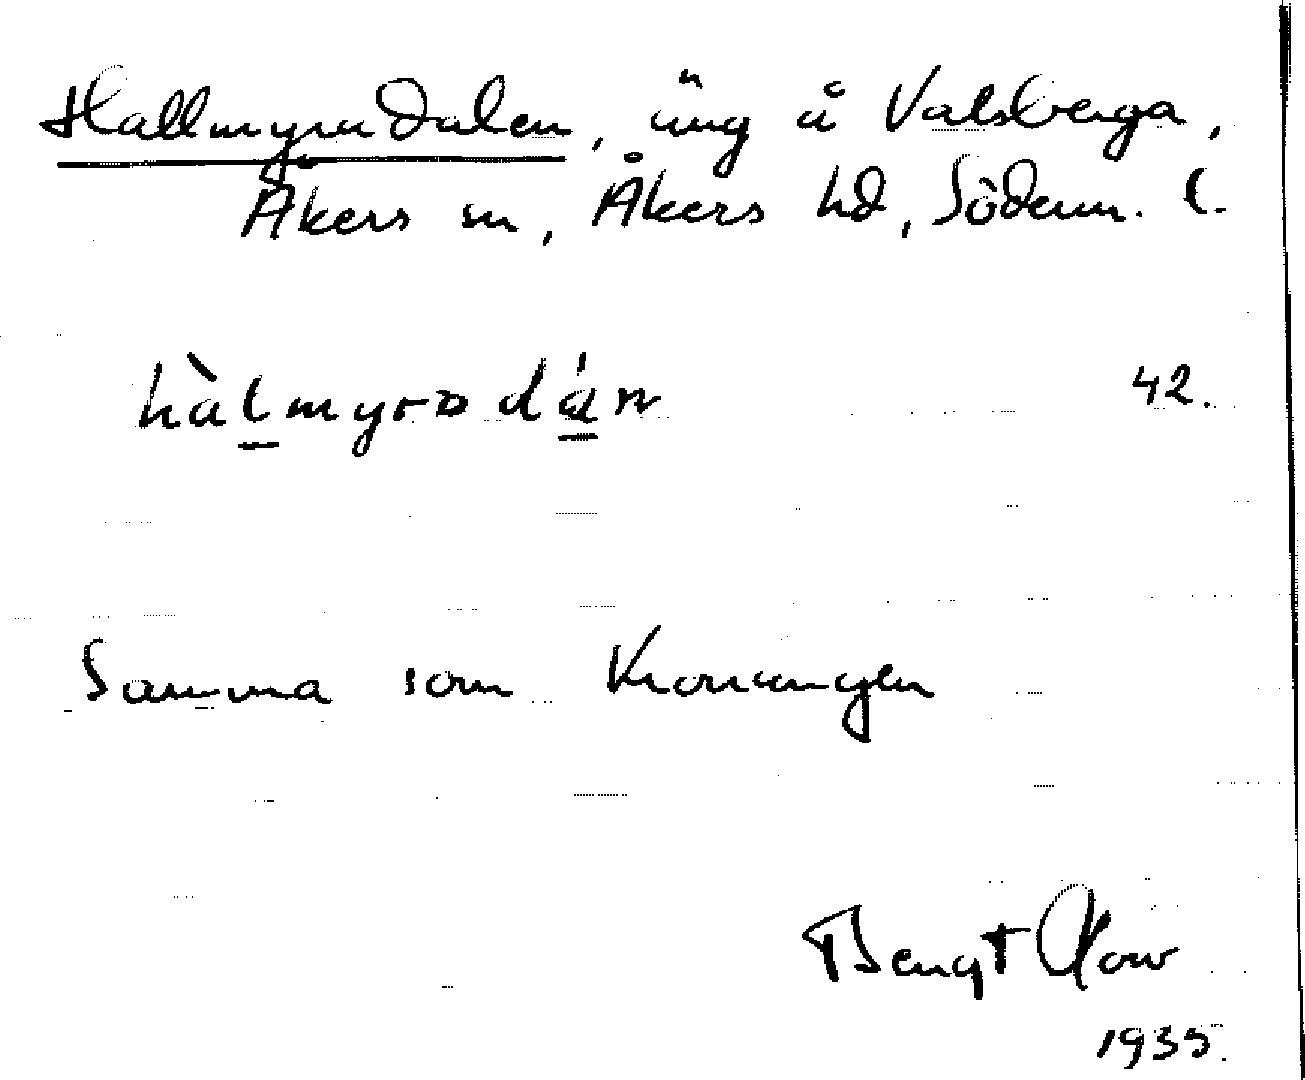 Hallmyradalen, äng å Valsberga,
Åkers sn, Åkers hd, Söderm. l.
hàlmyradán 42.
Samma som Kronängen
Bengt
1935.